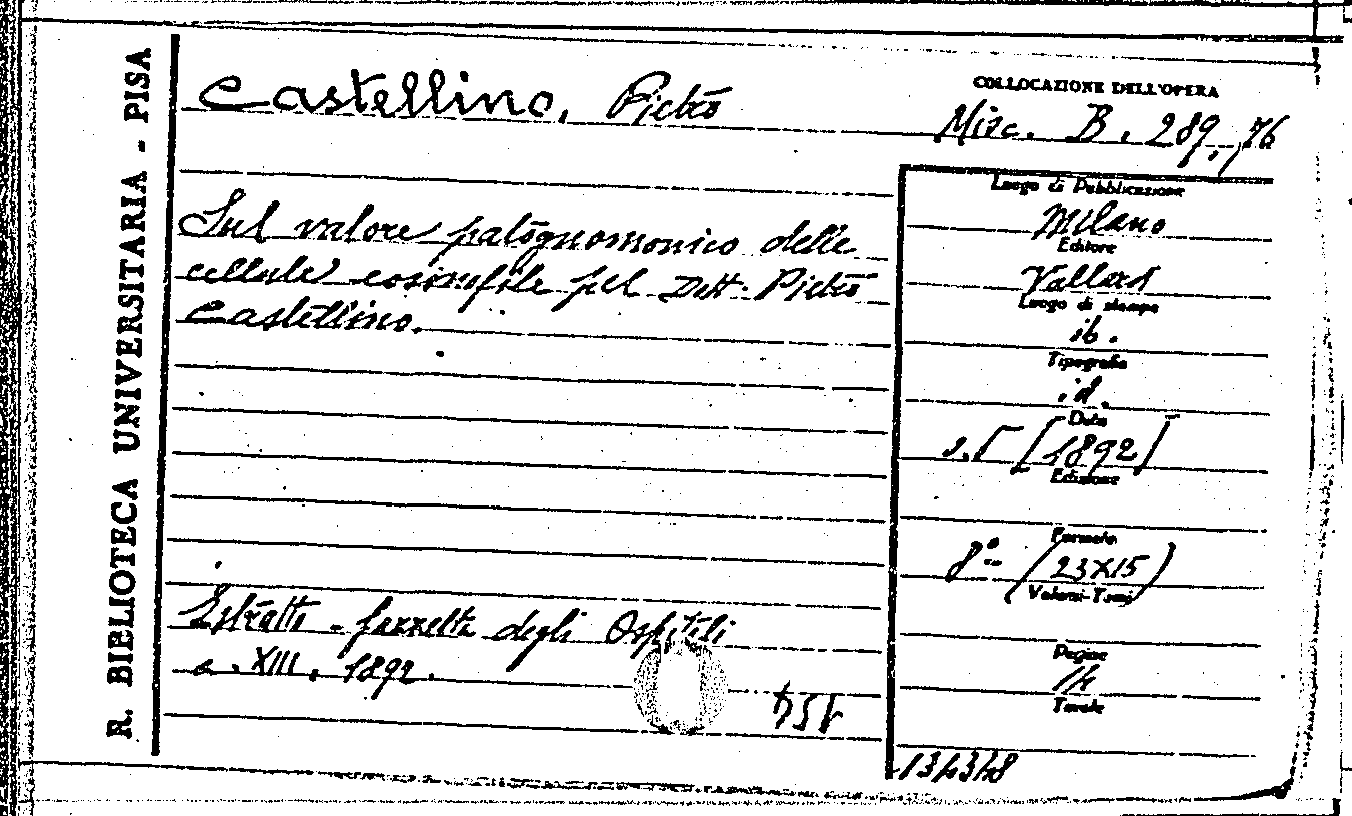 R. BIBLIOTECA UNIVERSITARIA - PISA
Castellino, Pietro
COLLOCAZIONE DELL'OPERA
Misc. B. 289, 76
Sul valore patognomonico delle
cellule eosinofile pel Dott. Pietro
Castellino.
Luogo di Pubblicazione
Milano
Editore
Vallardi
Luogo di stampa
ib.
Tipografia
id.
Data
[1892]
Edizione
Formato
8º- (23X15)
Volumi-Tomi
Pagine
Tavole
Estratto - Gazzetta degli Ospitali
a. XIII, 1892.